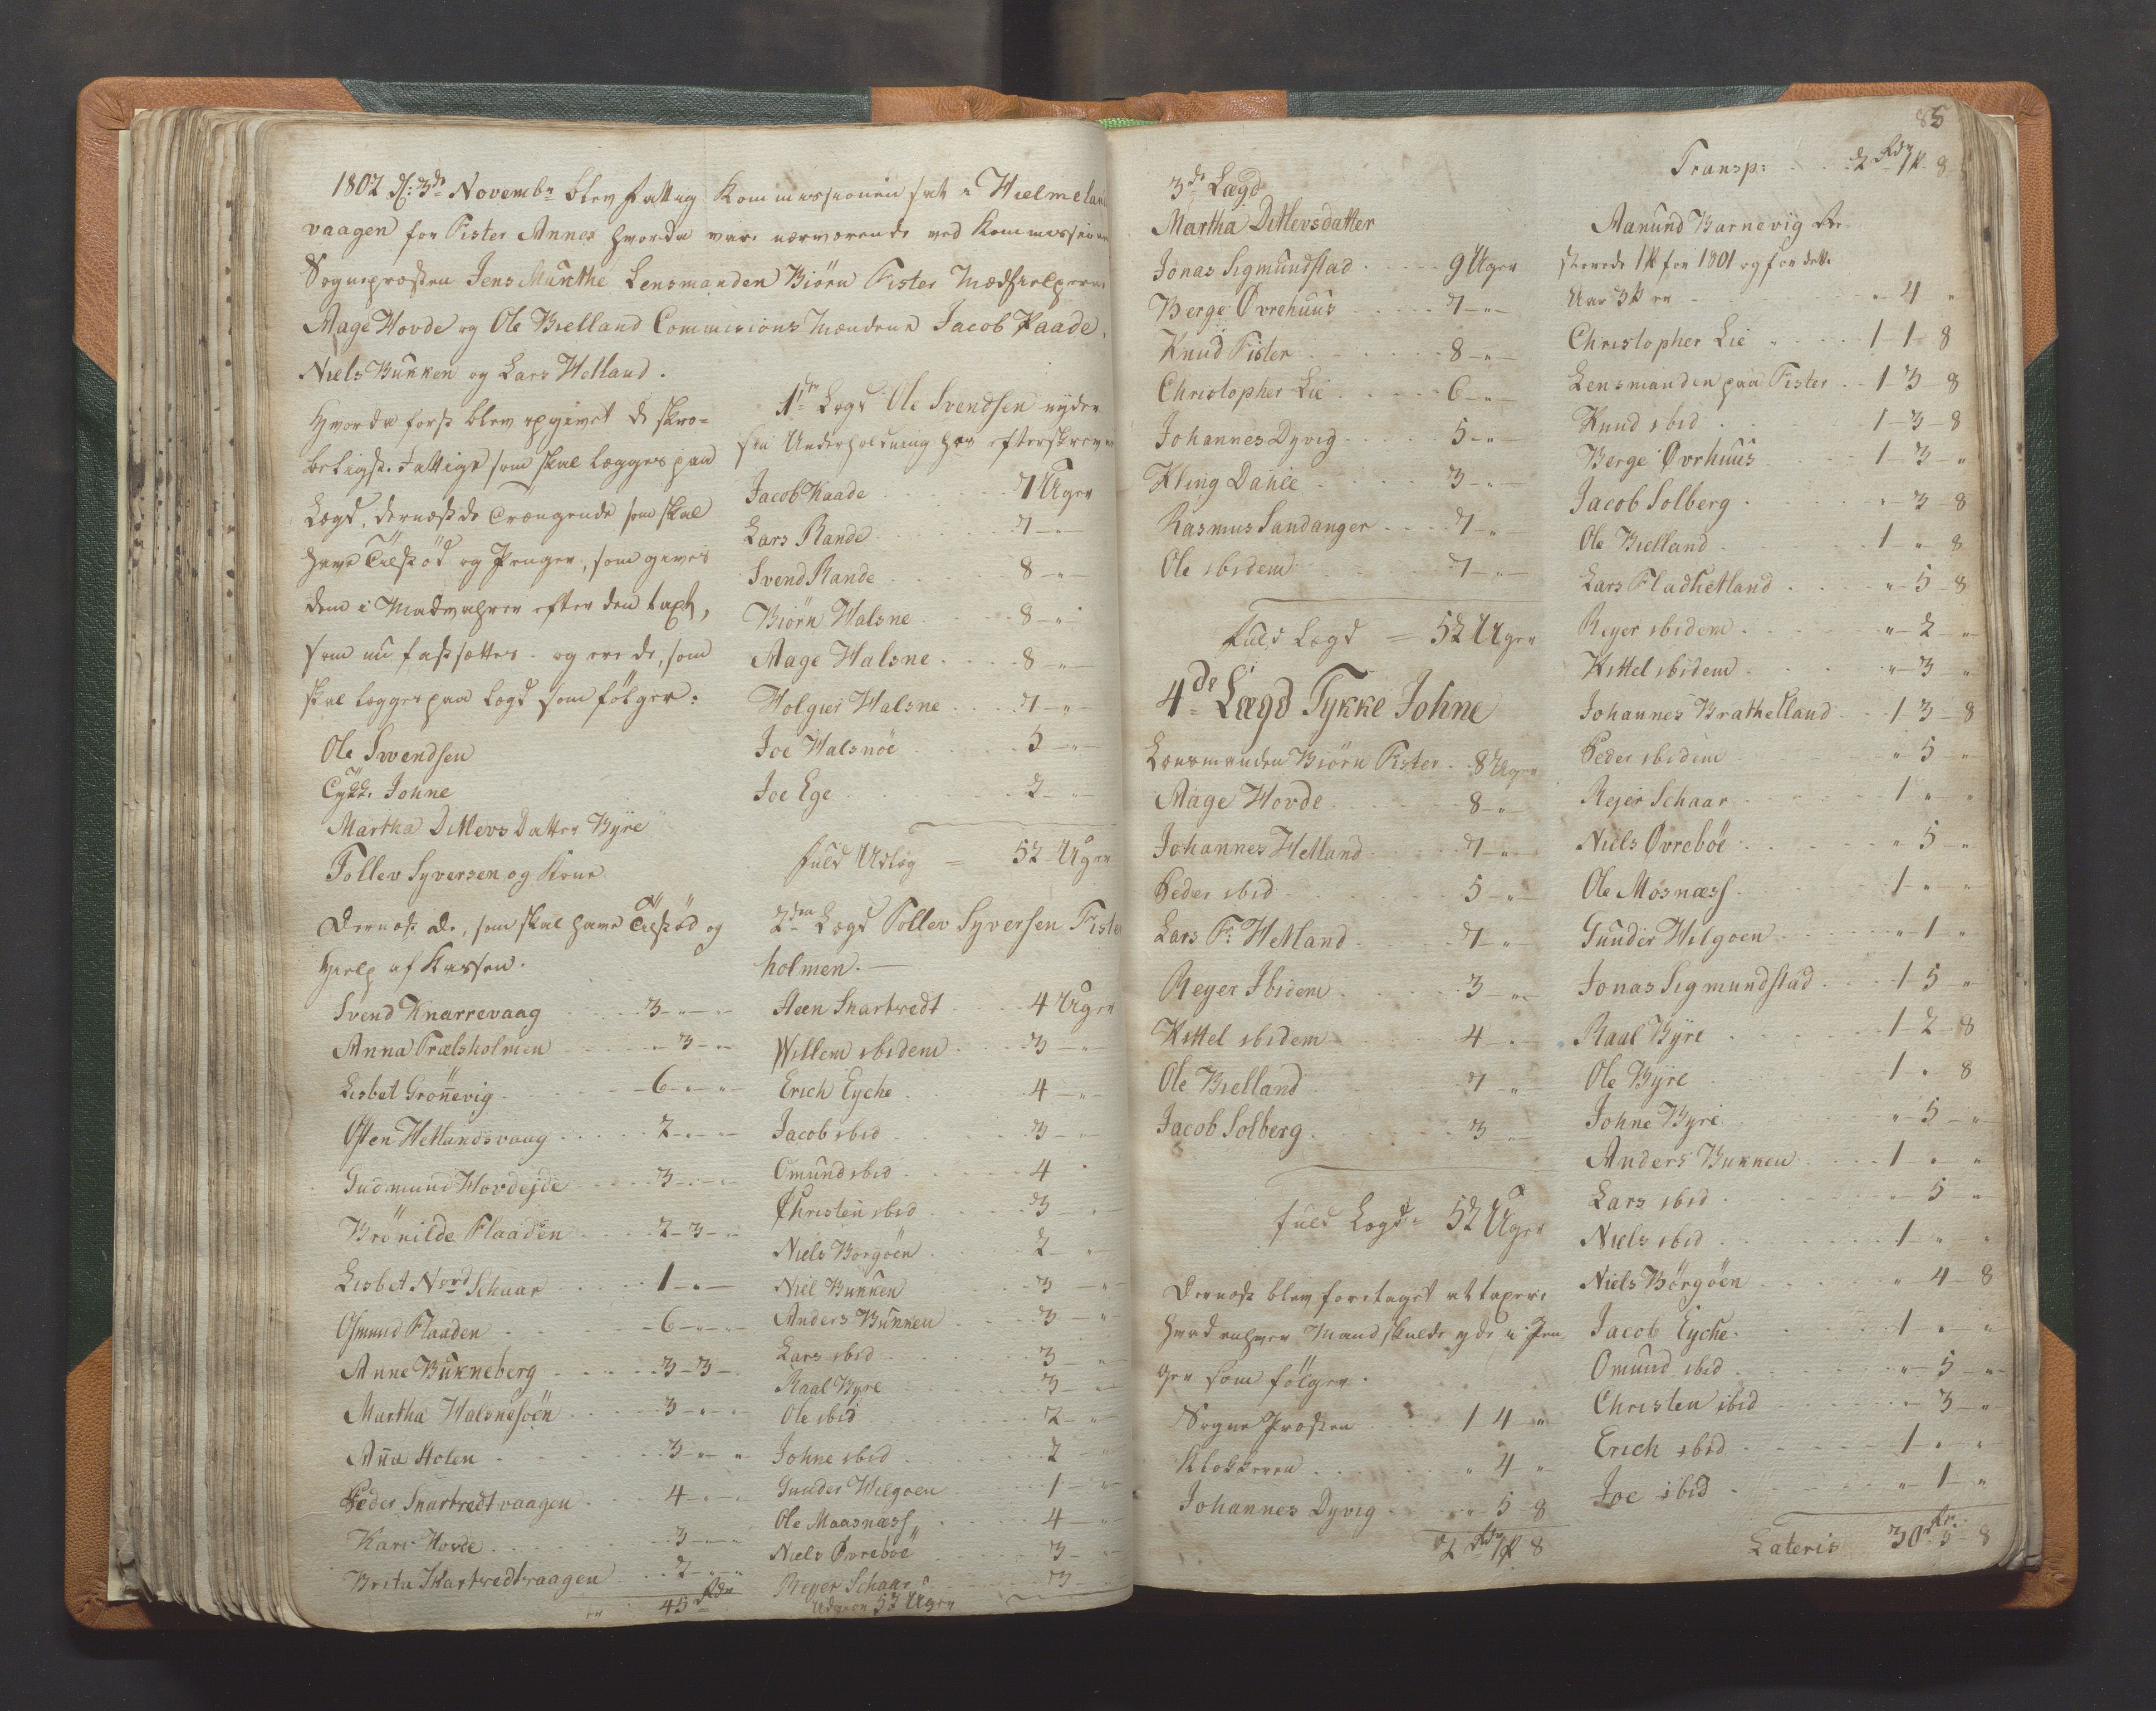 1802 d: 3de Novembr blev Fattig Kommissionen sat i Hielmeland
vaagen for Fister Annex hvorda vare nærværende ved Kommissionen
Sogneprosten Jens Munthe Lensmanden Biørn Fister Medhielperne
Aage Hovde og Ole Bielland Commisions Mændene Jacob Kaade,
Niels Bunken og Lars Helland.
Hvorda først blev opgivet de skrø-
beligste Fattige som skal lægges paa
Lægd, dernæst de Trængende som skal
have Tilskød og Penger, som gives
dem i Madvahrer efter den taxt,
som nu fastsættes - og ere de, som
skal lægges paa Lægd som følger:
Ole Svendsen
Tykke Johne
Martha Ditlevs Datter Byre
Tollev Syversen og Kone
Dernæst de, som skal have Tilskød og
Hielp af Kassen.
Svend Knarrevaag 3 - " - "
Anna Trælsholmen " - 3 - "
Lisbet Grønnevig 6 - " - "
Østen Hetlandsvaag 2 - " - "
Gudmund Hovdejde 3 - " - "
Brønilde Flaaden 2 - 3 - "
Lisbet Nord Schaar 1 - " -
Osmund Flaaden 6 - " - "
Anne Bukneberg 3 - 3 -
Martha Halsnesøen 3 - " - "
Anna Holen 3 - " - "
Peder Snartvedtvaagen 4 - " - "
Kari Hovde 3 - " - "
Brita Snartvedtvaagen 2 - " - "
er 45 Rdr
1te Lægd Ole Svendsen nyder
sin Underholdning hos efterskrevne
Jacob Kaade 7 Uger
Lars Rande 7 - " -
Svend Rande 8 - " -
Biørn Halsne 8 - "
Aage Halsne 8 - " -
Holgier Halsne 7 - " -
Joe Halsnøe 5 - " -
Joe Ege 2 - " -
fuld Udlæg = 52 Uger
2den Lægd Tollev Syversen Fister
holmen. -
Steen Snartvedt 4 Uger
Willem ibidem 3 - " -
Erich Eyche 4 - " -
Jacob ibid 3 - " -
Omund ibid 4 "
Christen ibid 3 - " -
Niels Borgøen 2 - " -
Niel Bunken 3 - " -
Anders Bunken 3 - " -
Lars ibid 3 - " -
Raal Byre 3 - " -
Ole ibid 2 - " -
Johne ibid 2 - " -
Gunder Helgøen 1 - " -
Ole Maasnæss 4 - " -
Niels Øvrebøe 3 - " -
Reyer Schaar 3 - " -
Udgiør 52 Uger
3de Lægd
Martha Ditlevsdatter
Jonas Sigmundstad 9 Uger
Berge Øvrehuus 7 - " -
Knud Fister 8 - " -
Christopher Lie 6 - " -
Johannes Dyvig 5 - " -
Kling Dahle 3 - " -
Rasmus Sandanger 7 - " -
Ole ibidem 7 - " -
fuld Lægd = 52 Uger
4de Lægd Tykke Johne
Lensmanden Biørn Fister 8 Uger
Aage Hovde 8 - "
Johannes Hetland 7 - " -
Peder ibid 5 - " -
Lars F: Hetland 7 - "
Reyer Ibidem 3 - " -
Kittel ibidem 4 - " -
Ole Bielland 7 - "
Jacob Solberg 3 - " -
fuld Lægd = 52 Uger
Dernæst blev foretaget at taxere
hvad enhver Mand skulde yde i Pen
ger som følger.
Sogne Prosten 1 4 "
Klokkeren " 4 "
Johannes Dyvig " 5 - 8
2 Rdr 1 # 8
85
Transp: 2 Rdr 1 # 8
Aanund Barnevig Re-
sterede 1 # for 1801 og for dette
Aar 3 # er " 4 "
Christopher Lie 1 - 1 - 8
Lensmanden paa Fister 1 - 3 - 8
Knud ibid 1 - 3 - 8
Berge Øvrhuus 1 - 3 - "
Jacob Solberg " - 3 - 8
Ole Bielland 1 - " 8
Lars Fladhetland " 5 - 8
Reyer ibidem " - 2 - "
Kittel ibidem " - 3 - "
Johannes Brathetland 1 3 - 8
Peder ibidem " 5 - "
Rejer Schaar 1 - " - "
Niels Øvrebøe " 5 - "
Ole Mosnæss 1 - " "
Gunder Helgøen " - 1 - "
Jonas Sigmundstad 1 5 "
Raal Byre 1 - 2 - 8
Ole Byre 1 - " 8
Johne Byre " - 5 - "
Anders Bunken 1 " "
Lars ibid " 5 - "
Niels ibid 1 - " "
Niels Børgøen " 4 - 8
Jacob Eyche 1 " "
Omund ibid " - 5 - "
Christen ibid " - 3 - "
Erich ibid 1 - " "
Joe ibid " - 1 - "
Lateris 30 Rr. 5 - 8